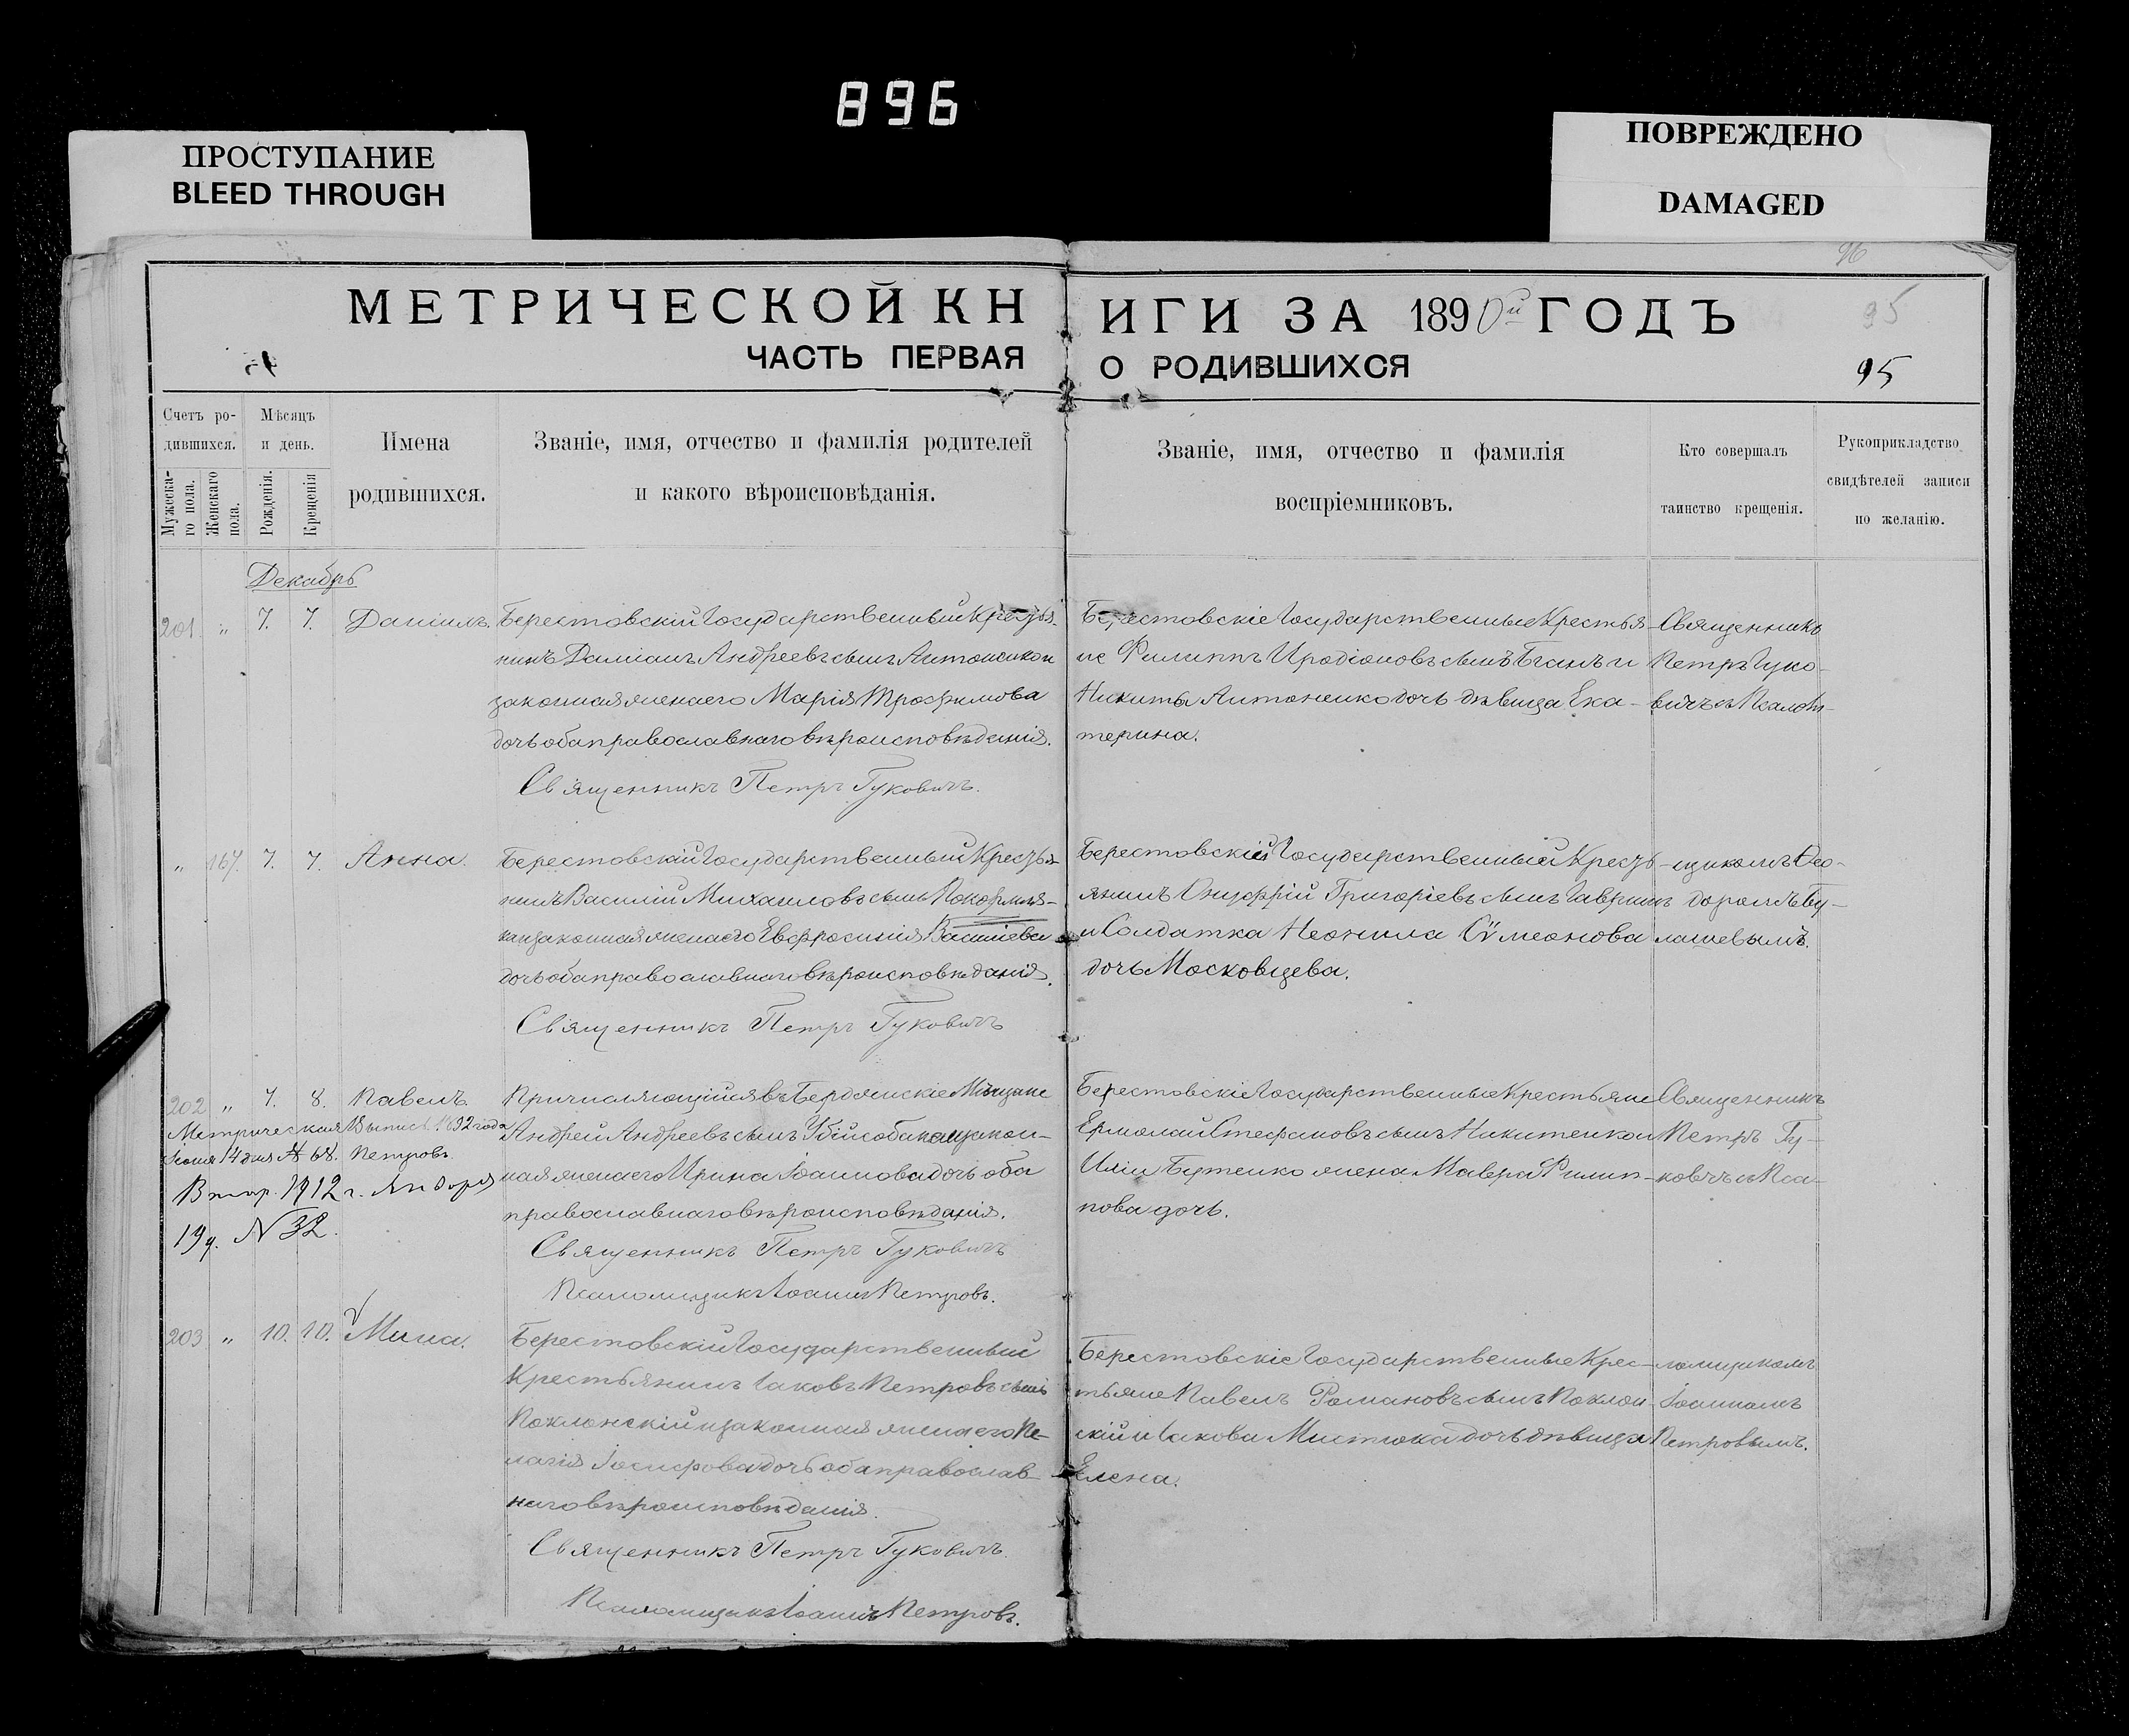 896
ПРОСТУПАНИЕ
BLEED THROUGH
ПОВРЕЖДЕНО
DAMAGED
96
МЕТРИЧЕСКОЙ КНИГИ ЗА 1890й ГОДЪ
95
ЧАСТЬ ПЕРВАЯ О РОДИВШИХСЯ
95
Счетъ ро-
дившихся.
Мужеска-
го пола.
Женскаго
пола.
Мѣсяцъ
и день.
Рожденія.
Крещенія
Имена
родившихся.
Званіе, имя, отчество и фамилія родителей
и какого вѣроисповѣданія.
Званіе, имя, отчество и фамилія
воспріемниковъ.
Кто совершалъ
таинство крещенія.
Рукоприкладство
свидѣтелей записи
по желанію.
Декабрь
201. „ 7. 7. Даніилъ.
Берестовскій Государственный Крестья-
нинъ Даміанъ Андреевъ сынъ Антоненко и
законная жена его Марія Трофимова
дочь оба православнаго вѣроисповѣданія.
Священникъ Петръ Гуковичъ.
Берестовскіе Государственные Крестья-
не Филиппъ Иродіоновъ сынъ Бганъ и
Никиты Антоненко дочь дѣвица Ека-
терина.
Священникъ
Петръ Гуко-
вичъ съ Псалом-
„ 167. 7. 7. Анна.
Берестовскій Государственный Крестья-
нинъ Василій Михаиловъ сынъ
законная жена его Евфросинія
дочь оба православнаго вѣроисповѣданія.
Священникъ Петръ Гуковичъ
Берестовскій Государственный Кресть-
янинъ Онуфрій Григоріевъ сынъ Гавришъ
и Солдатка Неонила Сѵмеонова
дочь Московцева.
щикомъ Ѳео-
доромъ Бу-
лашевымъ.
202 „ 7. 8. Павелъ.
Метрическая Выпись 1892 года
Іюня 14 дня № 68. Петровъ
Втор. 1912 г. Января
19 д. N 32.
Причисляющійся въ Бердянскіе Мѣщане
Андрей Андреевъ сынъ Убійсобака и закон-
ная жена его Ирина Іоаннова дочь оба
православнаго вѣроисповѣданія.
Священникъ Петръ Гуковичъ
Псаломщикъ Іоаннъ Петровъ.
Берестовскіе Государственные Крестьяне
Ермолай Стефановъ сынъ Никитенко и
Иліи Бутенко жена Мавра Филип-
пова дочь.
Священникъ
Петръ Гу-
ковчъ съ Пса-
203 „ 10. 10. Мина.
Берестовскій Государственный
Крестьянинъ Іаковъ Петровъ сынъ
Поклонскій и законная жена его Пе-
лагія Іосифова дочь оба православ-
наго вѣроисповѣданія.
Священникъ Петръ Гуковичъ.
Псаломщикъ Іоаннъ Петровъ.
Берестовскіе Государственные Крес-
тьяне Павелъ Романовъ сынъ Поклон-
скій и Іакова Мистюка дочь дѣвица
Елена.
ломщикомъ
Іоанномъ
Петровымъ.